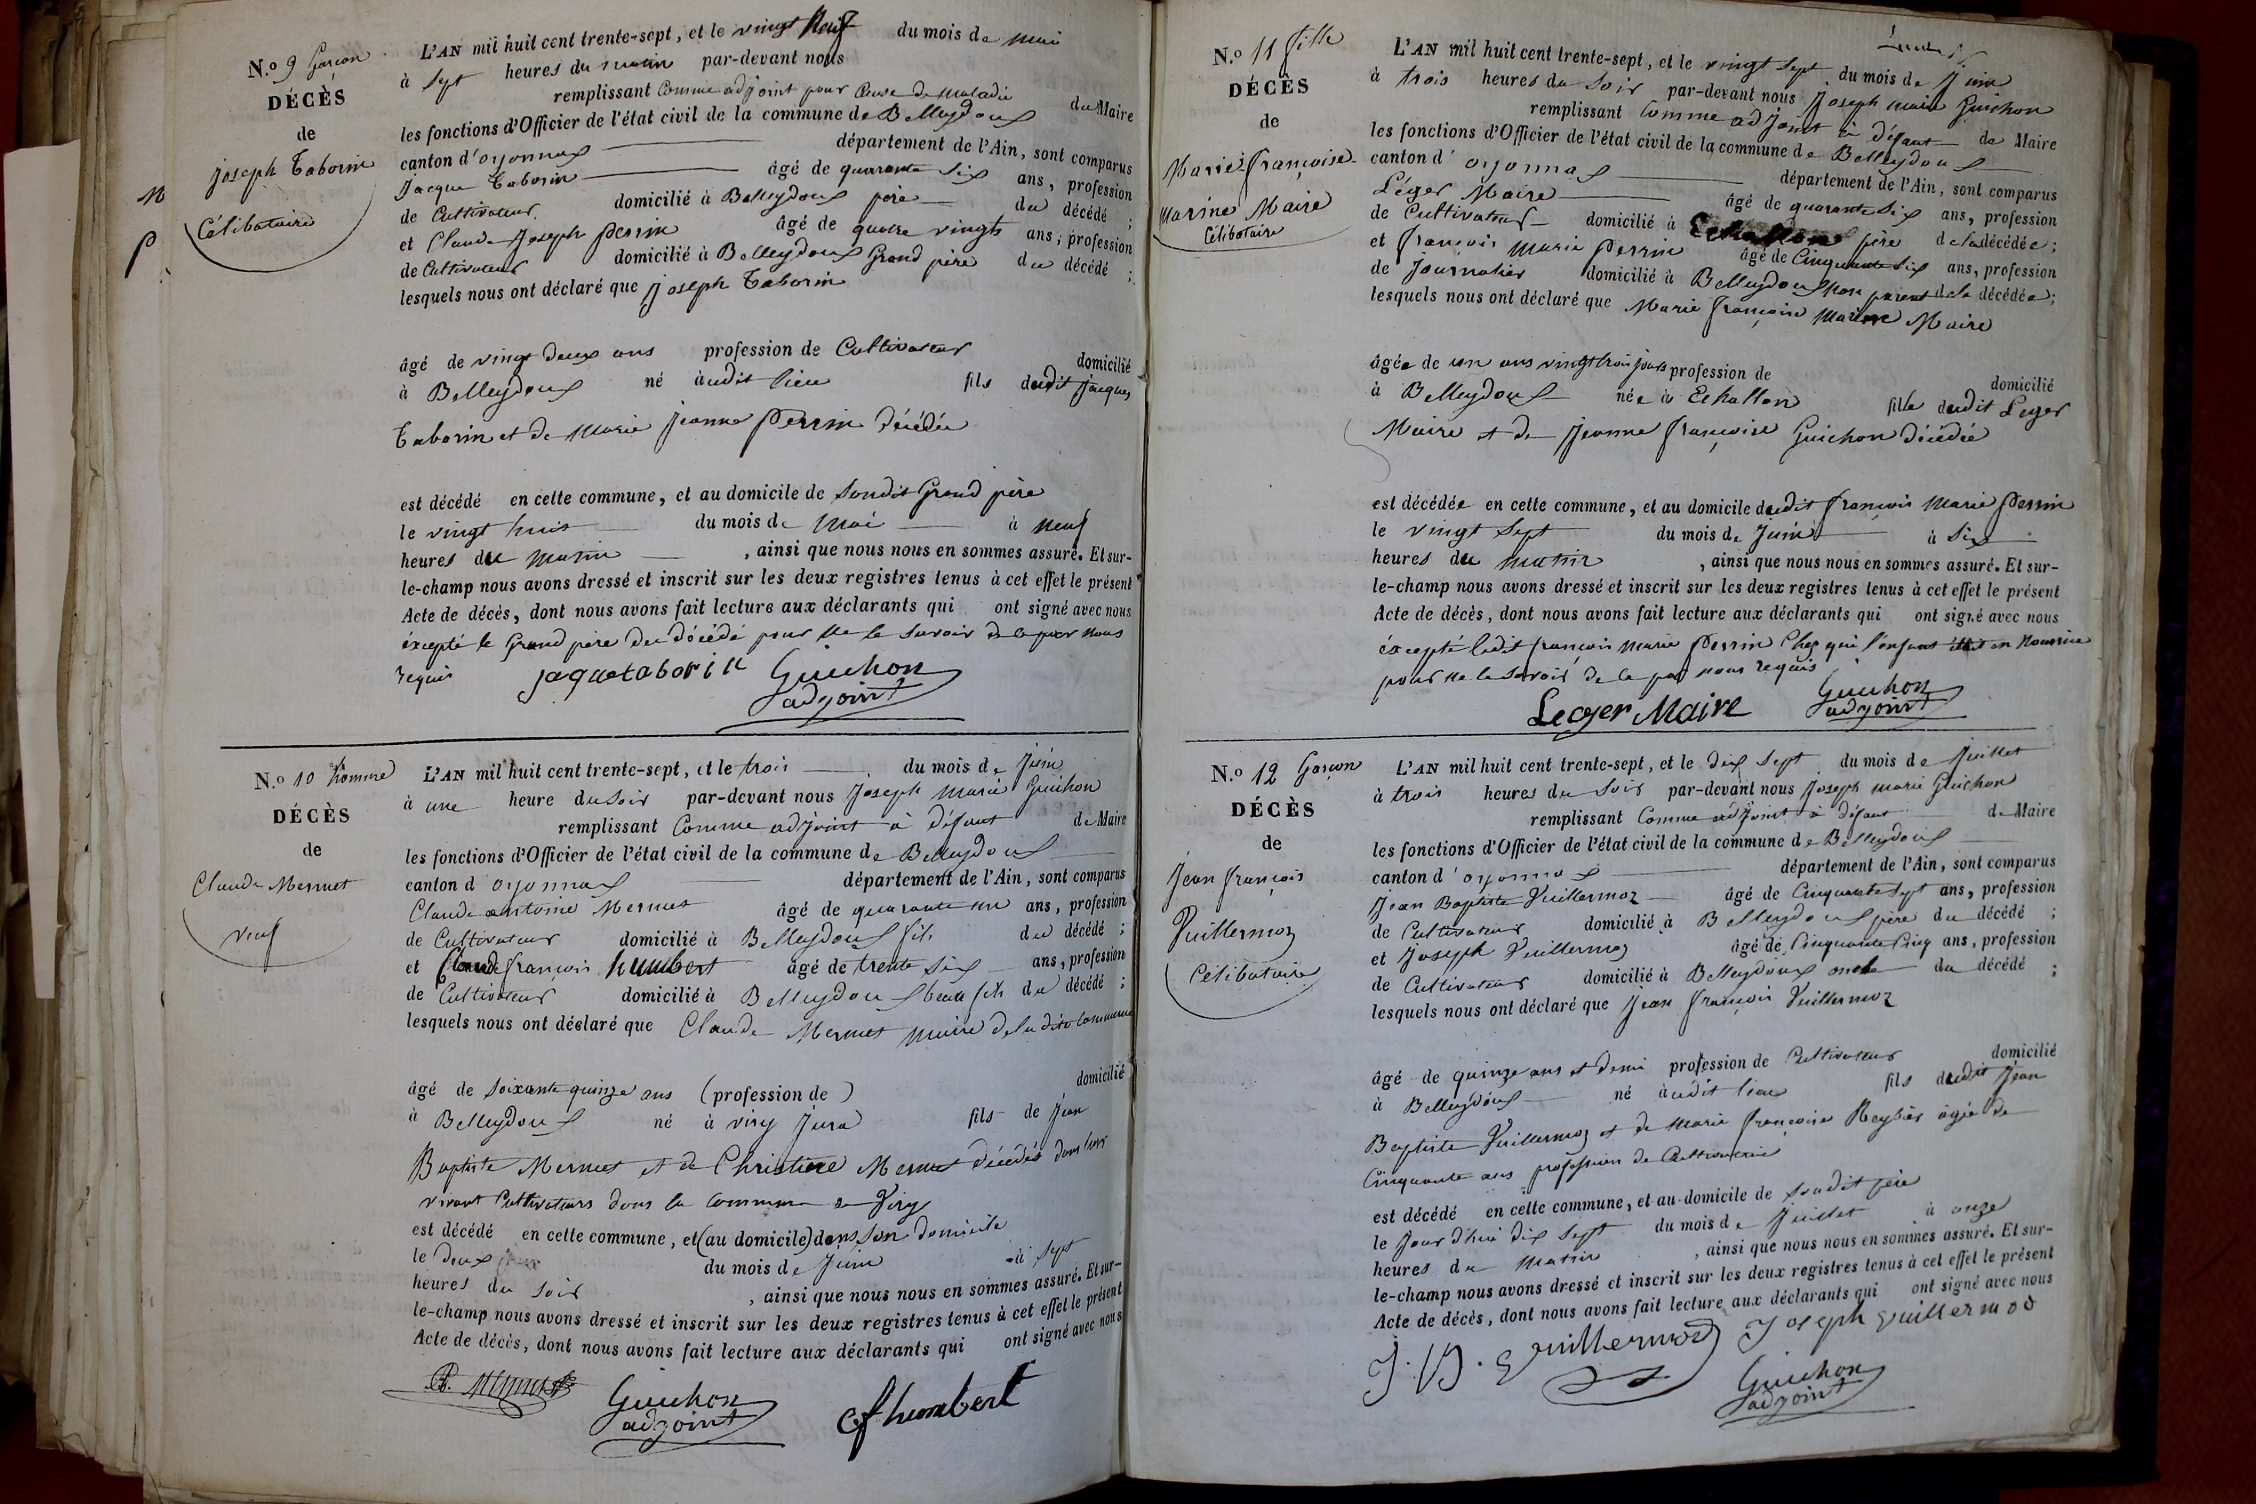 N.o 9 Garçon
DÉCÈS
de
joseph Taborin
Célibataire
L'AN mil huit cent trente-sept, et le vingt Neuf du mois de mai
à Sept heures du matin par-devant nous
remplissant Comme adjoint pour Cause de Maladie du Maire
les fonctions d'Officier de l'état civil de la commune de Belleydoux
canton d'oyonnax département de l'Ain, sont comparus
Jacque Taborin âgé de quarante Six ans, profession
de Cultivateur domicilié à Belleydoux père du décédé ;
et Claude Joseph Perrin âgé de quatre vingts ans, profession
de Cultivateur domicilié à Belleydoux Grand père du décédé ;
lesquels nous ont déclaré que Joseph Taborin
âgé de vingt deux ans profession de Cultivateur domicilié
à Belleydoux né audit lieu fils dudit Jacques
Taborin et de Marie Jeanne Perrin décédée
est décédé en cette commune, et au domicile de Sondit Grand père
le vingt huit du mois de Mai à Neuf
heures du Matin , ainsi que nous nous en sommes assuré. Et sur-
le-champ nous avons dressé et inscrit sur les deux registres tenus à cet effet le présent
Acte de décès, dont nous avons fait lecture aux déclarants qui ont signé avec nous
éxcepté le Grand père du décédé pour ne le Savoir de ce par nous
requis jaquetaborin Guichon
adjoint
N.o 10 homme
DÉCÈS
de
Claude Mermet
veuf
L'AN mil huit cent trente-sept, et le trois du mois de Juin
à une heure du Soir par-devant nous Joseph Marie Guichon
remplissant Comme adjoint à défaut de Maire
les fonctions d'Officier de l'état civil de la commune de Belleydoux
canton d'oyonnax département de l'Ain, sont comparus
Claude antoine Mermet âgé de quarante un ans, profession
de Cultivateur domicilié à Belleydoux fils du décédé ;
et Claude françois humbert âgé de trente Six ans, profession
de Cultivateur domicilié à Belleydoux beau fils du décédé ;
lesquels nous ont déclaré que Claude Mermet maire de la dite Commune
âgé de Soixante quinze ans (profession de) domicilié
à Belleydoux né à viry Jura fils de Jean
Baptiste Mermet et de Christine Mermet décédés dans leur
vivant Cultivateurs dans la Commune de Viry
est décédé en cette commune, et (au domicile) dans Son domicile
le deux du mois de Juin à Sept
heures du Soir , ainsi que nous nous en sommes assuré. Et sur-
le-champ nous avons dressé et inscrit sur les deux registres tenus à cet effet le présent
Acte de décès, dont nous avons fait lecture aux déclarants qui ont signé avec nous
Mermet Guichon
adjoint cfhumbert
N.o 11 fille
DÉCÈS
de
Marie françoise
Marine Maire
Célibataire
L'AN mil huit cent trente-sept, et le vingt Sept du mois de Juin
à trois heures du Soir par-devant nous Joseph marie Guichon
remplissant Comme adjoint à défaut de Maire
les fonctions d'Officier de l'état civil de la commune de Belleydoux
canton d'oyonnax département de l'Ain, sont comparus
Léger Maire âgé de quarante Six ans, profession
de Cultivateur domicilié à Echallon père de la décédée ;
et françois Marie Perrin âgé de Cinquante Six ans, profession
de Journalier domicilié à Belleydoux Non parent de la décédée ;
lesquels nous ont déclaré que Marie françoise Marine Maire
âgée de un ans vingt trois jours profession de domicilié
à Belleydoux née à Echallon fille dudit Leger
Maire et de Jeanne françoise Guichon décédée
est décédée en cette commune, et au domicile dudit françois Marie Perrin
le vingt Sept du mois de Juin à Six
heures du matin , ainsi que nous nous en sommes assuré. Et sur-
le-champ nous avons dressé et inscrit sur les deux registres tenus à cet effet le présent
Acte de décès, dont nous avons fait lecture aux déclarants qui ont signé avec nous
éxcepté ledit françois Marie Perrin Chez qui l'enfant était en Nourrice
pour ne le Savoir de ce par nous requis
Leger Maire Guichon
adjoint
N.o 12 Garçon
DÉCÈS
de
Jean françois
Vuillermoz
Célibataire
L'AN mil huit cent trente-sept, et le dix Sept du mois de Juillet
à trois heures du Soir par-devant nous Joseph marie Guichon
remplissant Comme adjoint à défaut de Maire
les fonctions d'Officier de l'état civil de la commune de Belleydoux
canton d'oyonnax département de l'Ain, sont comparus
Jean Baptiste Vuillermoz âgé de Cinquante Sept ans, profession
de Cultivateur domicilié à Belleydoux père du décédé ;
et Joseph Vuillermoz âgé de Cinquante Cinq ans, profession
de Cultivateur domicilié à Belleydoux oncle du décédé ;
lesquels nous ont déclaré que Jean françois Vuillermoz
âgé de quinze ans et demi profession de Cultivateur domicilié
à Belleydoux né audit lieu fils dudit Jean
Baptiste Vuillermoz et de Marie françoise Reybier âgée de
Cinquante ans profession de Cultivatrice
est décédé en cette commune, et au domicile de Sondit père
le jourd'hui dix Sept du mois de Juillet à onze
heures du Matin , ainsi que nous nous en sommes assuré. Et sur-
le-champ nous avons dressé et inscrit sur les deux registres tenus à cet effet le présent
Acte de décès, dont nous avons fait lecture aux déclarants qui ont signé avec nous
J. B. Vuillermoz Joseph vuillermoz
Guichon
adjoint